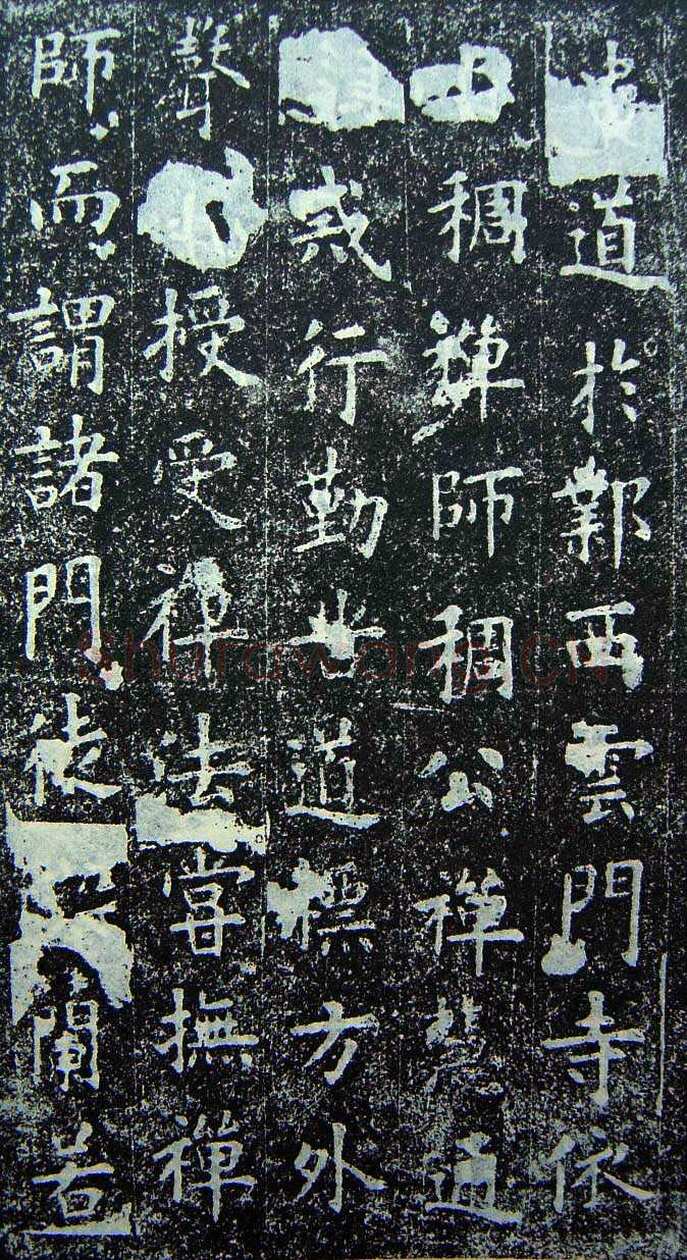 道於鄴西雲門寺依
稠禪師稠公禪慧通
戒行勤苦道標方外
聲授受禪法嘗撫禪
師而謂諸門徒蘭若
shufawang.CN